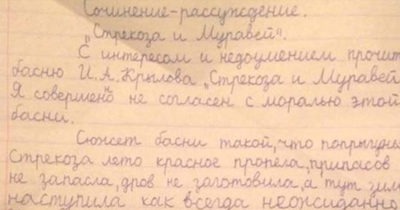 Сочинение-рассуждение.
„Стрекоза и Муравей".
С интересом и недоумением прочит
басню И.А.Крылова „Стрекоза и Муравей
Я совершенн не согласен с моралью этой
басни.
Сюжет басни такой, что попрыгунь
Стрекоза лето красное пропела, припасов
не запасла, дров не заготовила, а тут зим
наступила как всегда неожиданно